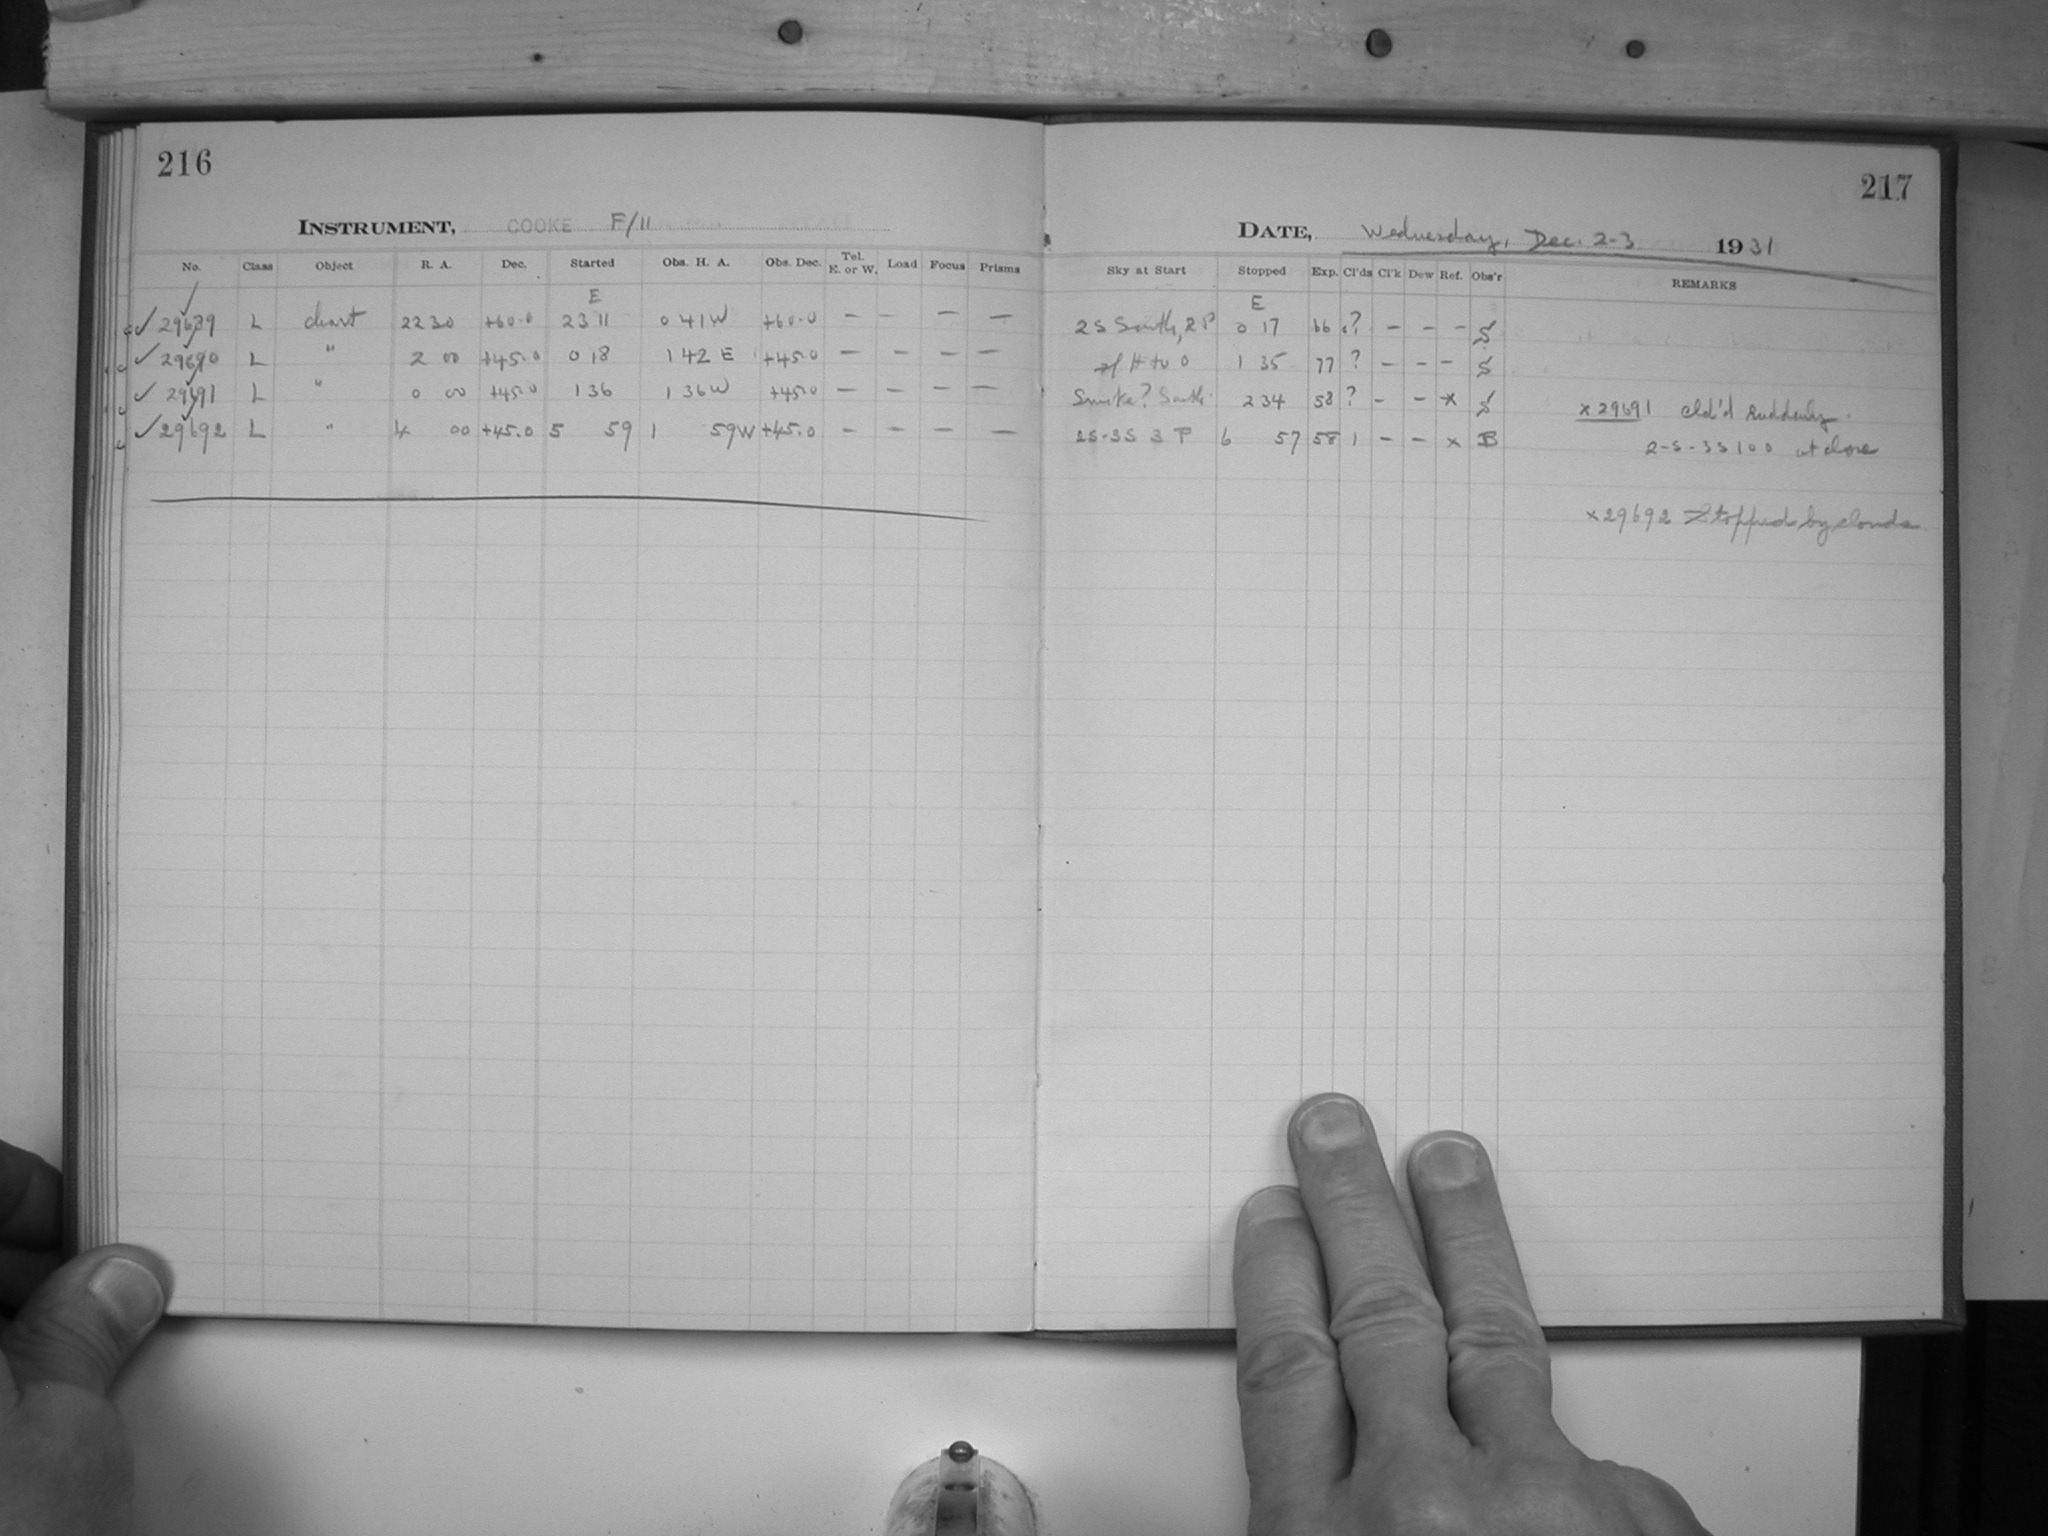 216
INSTRUMENT, COOKE F/11
No. Class Object R. A. Dec. Started Obs. H. A. Obs. Dec. Tel. E. or W. Load Focus Prisms
E
✓ 29689 L chart 22 30 +60.0 23 11 0 41 W +60.0 — — — —
✓ 29690 L " 2 00 +45.0 0 18 1 42 E +45.0 — — — —
✓ 29691 L " 0 00 +45.0 1 36 1 36 W +45.0 — — — —
✓ 29692 L " 4 00 +45.0 5 59 1 59 W +45.0 — — — —
217
DATE, Wednesday, Dec. 2-3 1931
Sky at Start Stopped Exp. Cl'ds Cl'k Dew Ref. Obs'r REMARKS
E
2S South, 2P 0 17 66 ? — — — S
H to O 1 35 77 ? — — — S
Smoke? South 2 34 58 ? — — x S x 29691 cld'd suddenly.
2S-3S 3 P 6 57 58 1 — — x B 2-S-3S 100 at close
x 29692 Stopped by clouds